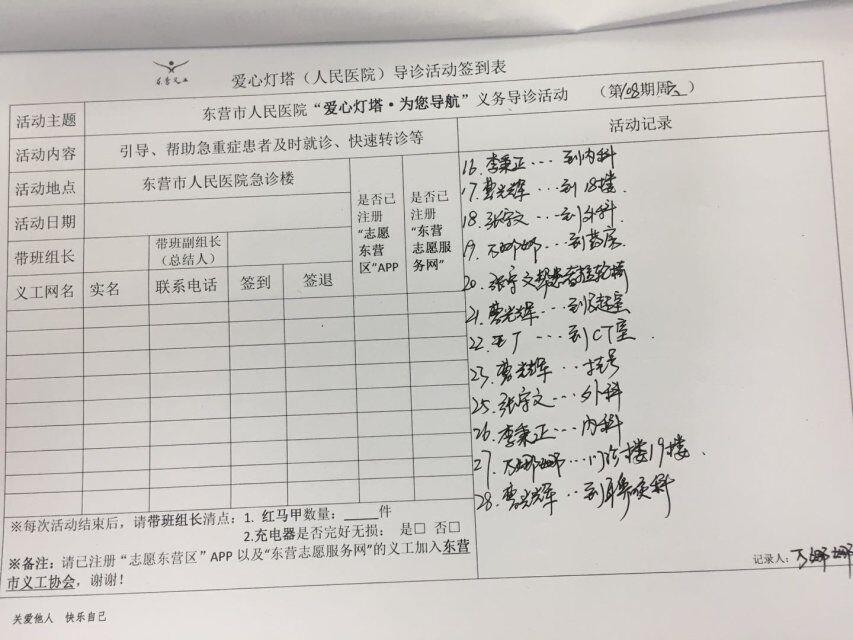 东营义工
爱心灯塔（人民医院）导诊活动签到表
活动主题
东营市人民医院“爱心灯塔·为您导航”义务导诊活动 （第108期周六）
活动内容
引导、帮助急重症患者及时就诊、快速转诊等
活动记录
活动地点
东营市人民医院急诊楼
是否已注册“志愿东营区”APP
是否已注册“东营志愿服务网”
活动日期
带班组长
带班副组长
（总结人）
义工网名 实名 联系电话 签到 签退
16.李秉正…到内科
17.曹光辉…到18楼.
18.张宇文…到外科.
19.万娜娜…到药房
20.张宇文帮患者推轮椅
21.曹光辉…到
22.王丁…到CT室.
23.曹光辉…挂号
25.张宇文…外科
26.李秉正…内科
27.万娜娜…门诊楼19楼.
28.曹光辉…到耳鼻喉科
※每次活动结束后，请带班组长清点：1. 红马甲数量：_____件
2.充电器是否完好无损： 是□ 否□
※备注：请已注册“志愿东营区”APP 以及“东营志愿服务网”的义工加入东营
市义工协会，谢谢！
记录人：万娜娜
关爱他人 快乐自己